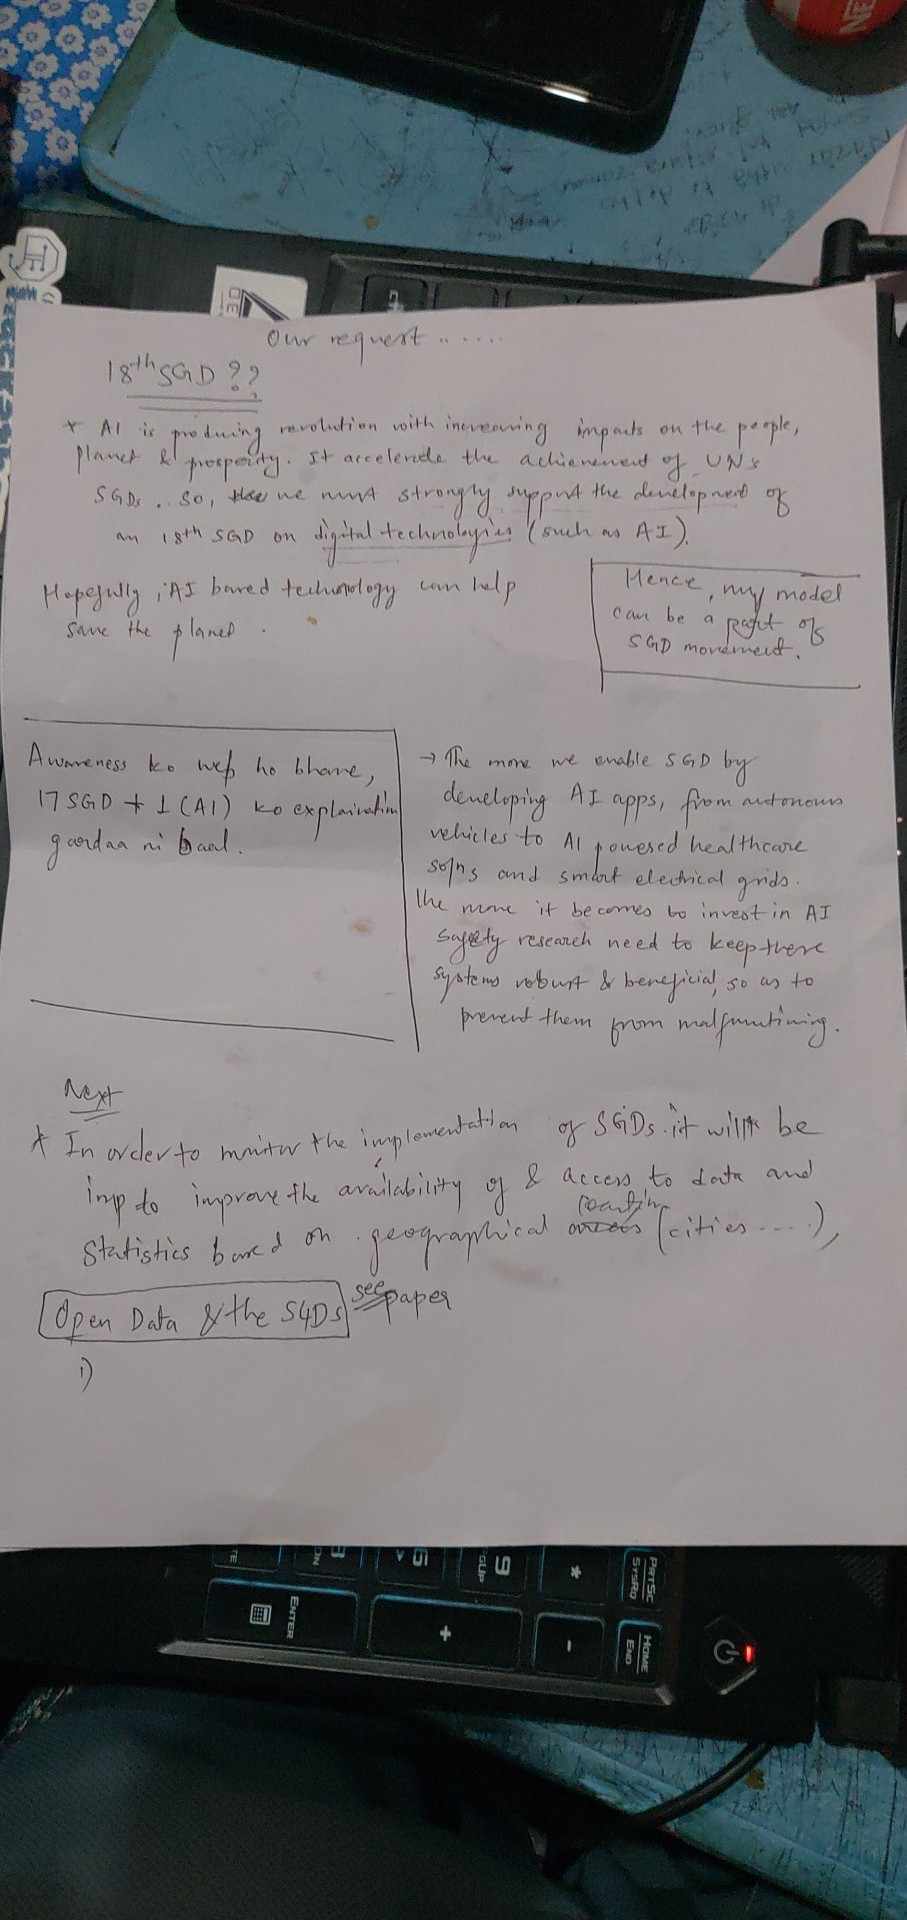 Our request ......
18th SGD ??
* AI is producing revolution with increasing impacts on the people,
planet & prosperity. It accelerate the achievement of UN's
SGDs .. So, we must strongly support the development of
an 18th SGD on digital technologies (such as AI).
Hopefully, AI based technology can help
save the planet.
Hence, my model
can be a part of
SGD movement.
Awareness ko web ho bhane,
17 SGD + 1 (AI) ko explaination
gardaa ni baal.
→ The more we enable SGD by
developing AI apps, from autonomus
vehicles to AI powered healthcare
solns and smart electrical grids.
the more it becomes to invest in AI
safety research need to keep these
systems robust & beneficial, so as to
prevent them from malfunctining.
Next
* In order to monitor the implementation of SGDs. it will be
imp to improve the availability of & access to data and
Statistics based on geographical location (cities ....),
Open Data & the SGDs see paper
1)
PRTSC
SYSRQ
HOME
END
ENTER
9
PGUP
*
-
+